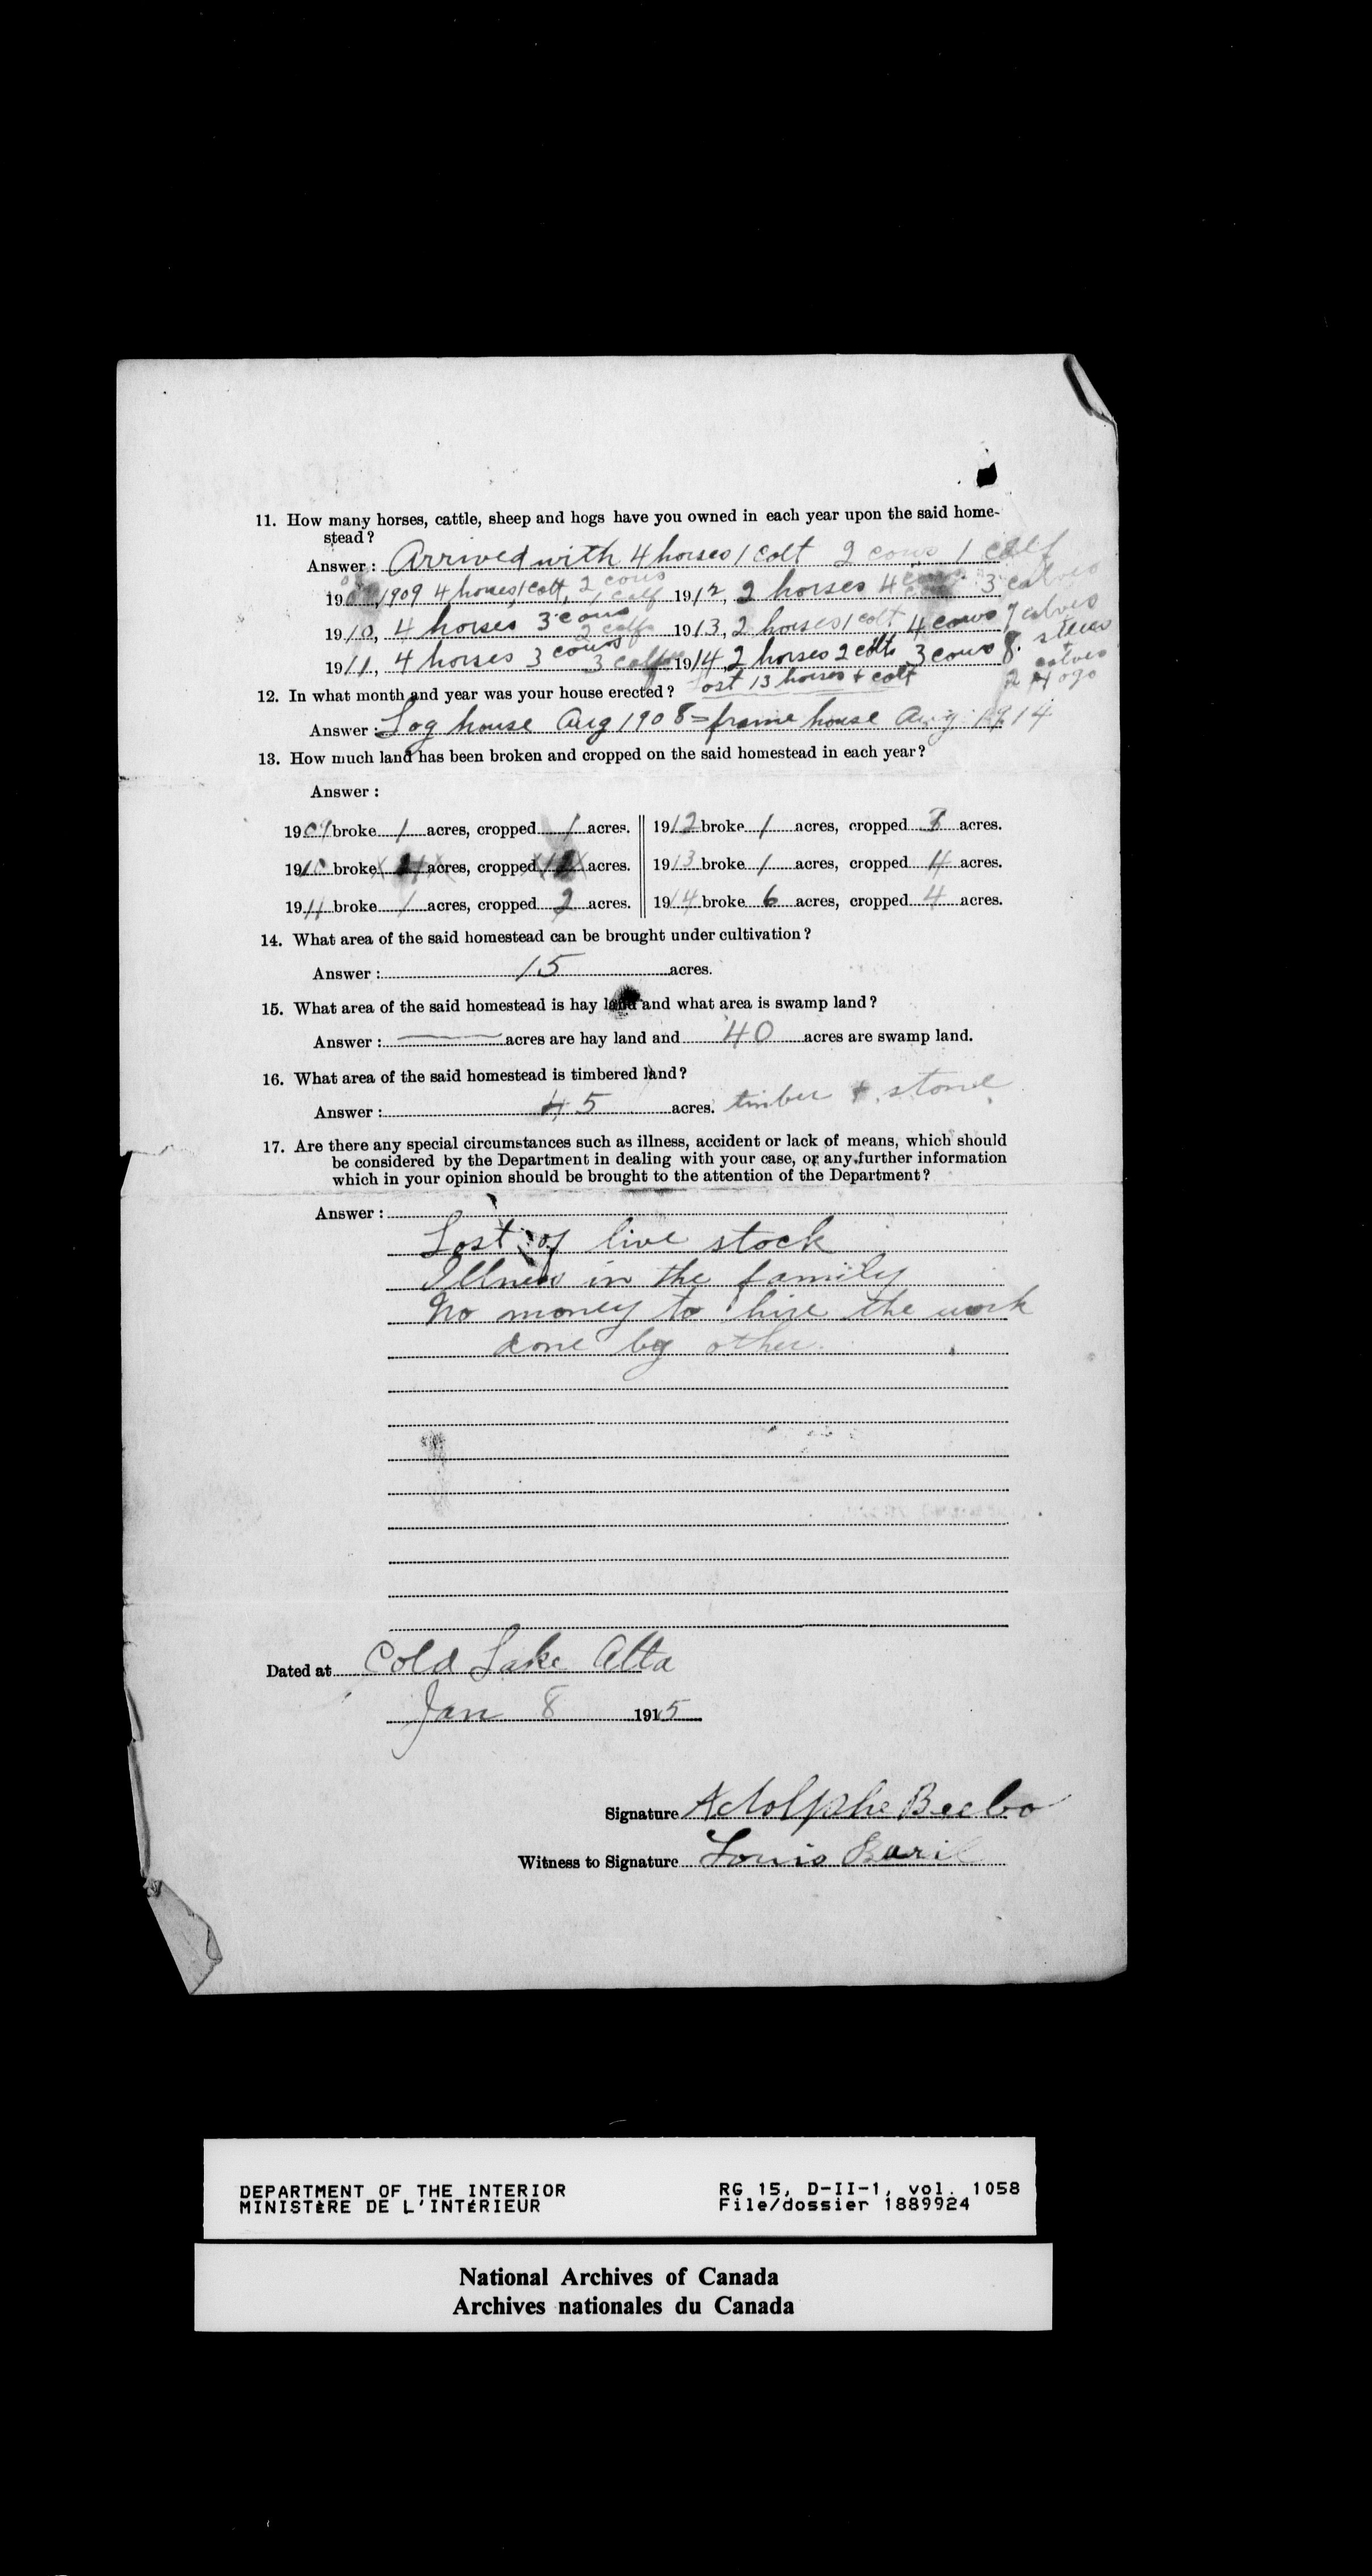 11. How many horses, cattle, sheep and hogs have you owned in each year upon the said home-
stead?
Answer: Arrived with 4 horses 1 colt 2 cows 1 calf
1909 4 horses, 1 colt, 2 cows 1 calf 1912, 2 horses 4 cows 3 calves
1910, 4 horses 3 cows 2 calfs 1913, 2 horses 1 colt 4 cows 7 calves
1911, 4 horses 3 cows 3 calfs 1914, 2 horses 2 colts 3 cows 8 steers
calves
2 Hogs
12. In what month and year was your house erected? Lost 13 horses & colt
Answer: Log house Aug 1908 = frame house Aug 1914
13. How much land has been broken and cropped on the said homestead in each year?
Answer:
1909 broke 1 acres, cropped 1 acres. 1912 broke 1 acres, cropped 3 acres.
1910 broke acres, cropped acres. 1913 broke 1 acres, cropped 4 acres.
1911 broke 1 acres, cropped 2 acres. 1914 broke 6 acres, cropped 4 acres.
14. What area of the said homestead can be brought under cultivation?
Answer: 15 acres.
15. What area of the said homestead is hay land and what area is swamp land?
Answer: acres are hay land and 40 acres are swamp land.
16. What area of the said homestead is timbered land?
Answer: 45 acres. timber & stone
17. Are there any special circumstances such as illness, accident or lack of means, which should
be considered by the Department in dealing with your case, or any further information
which in your opinion should be brought to the attention of the Department?
Answer:
Lost of live stock
Illness in the family
No money to hire the work
done by other.
Dated at Cold Lake Alta
Jan 8 1915
Signature Adolphe Beebo
Witness to Signature Louis Baril
DEPARTMENT OF THE INTERIOR RG 15, D-II-1, vol. 1058
MINISTÈRE DE L'INTÉRIEUR File/dossier 1889924
National Archives of Canada
Archives nationales du Canada